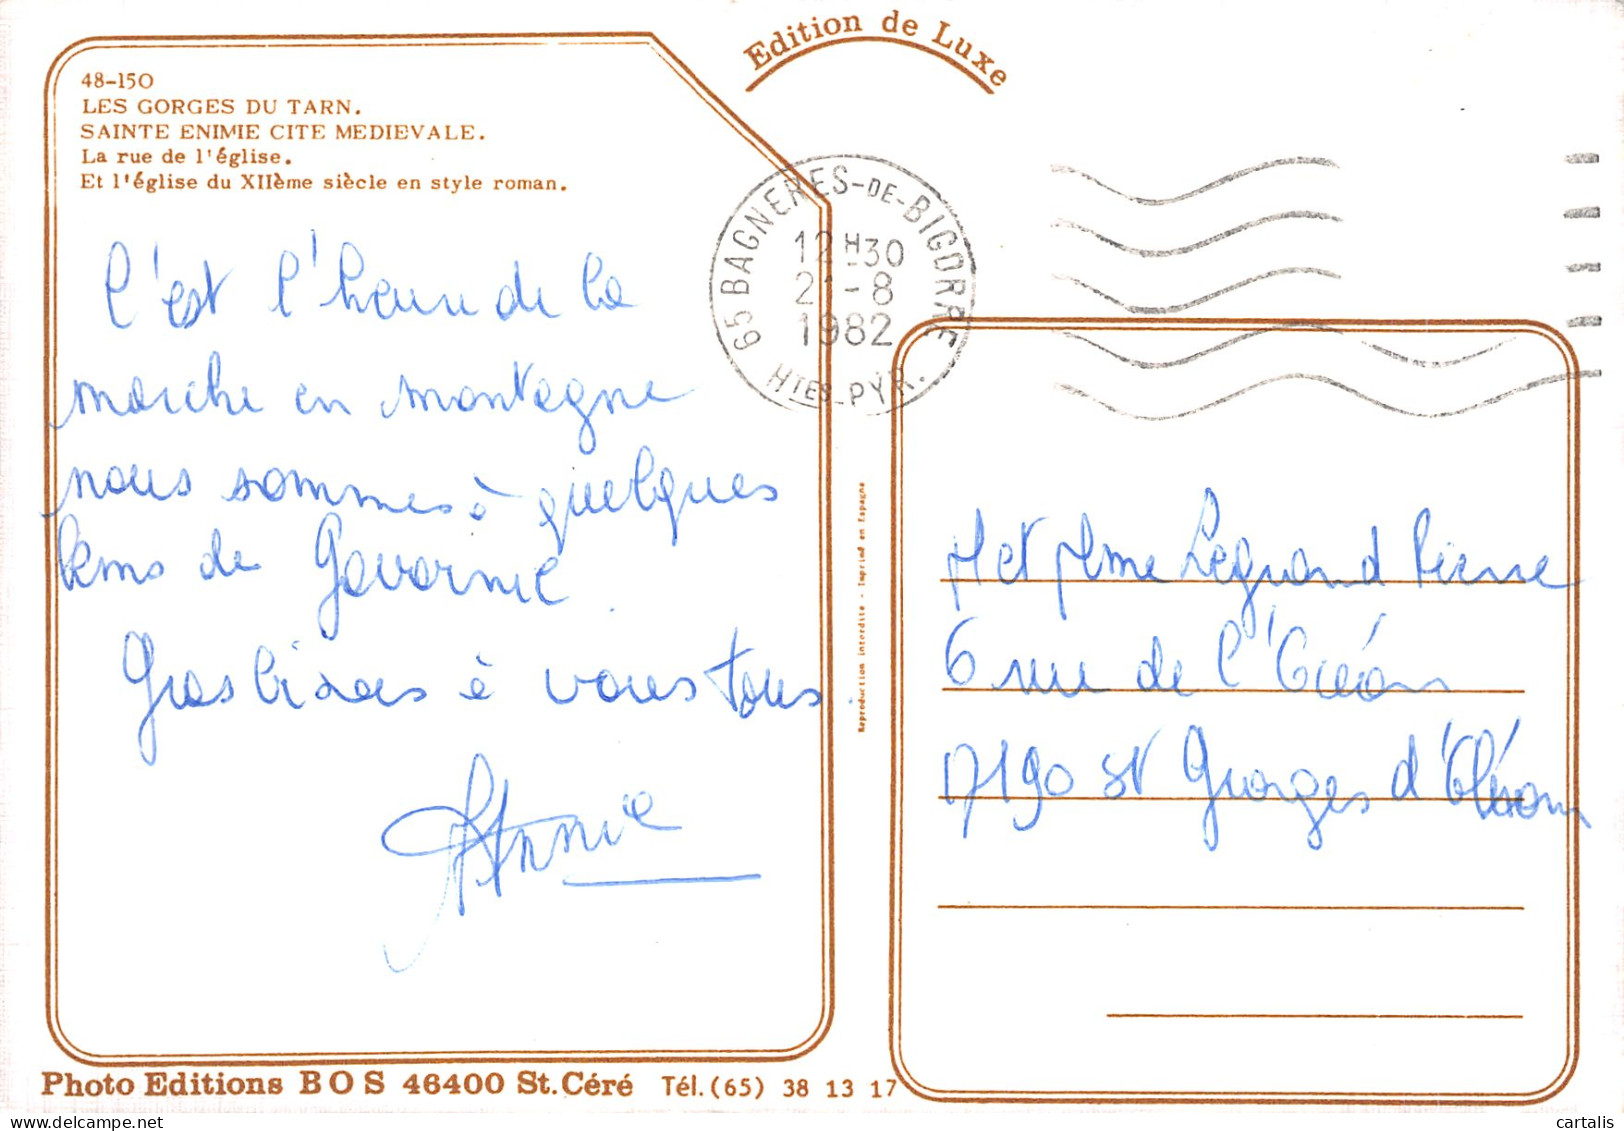 Edition de Luxe
48-150
LES GORGES DU TARN.
SAINTE ENIMIE CITE MEDIEVALE.
La rue de l'église.
Et l'église du XIIème siècle en style roman.
65 BAGNERES-DE-BIGORRE
12H30
21-8
1982
HTES-PYR.
C'est l'heure de la
marche en montagne
nous sommes à quelques
kms de Gavarnie.
Gros bisous à vous tous.
Annie
Reproduction interdite - Imprimé en Espagne
M et Mme Legrand Pierre
6 rue de l'
17190 St Georges d'Oléron
Photo Editions BOS 46400 St. Céré Tél. (65) 38 13 17
cartalis